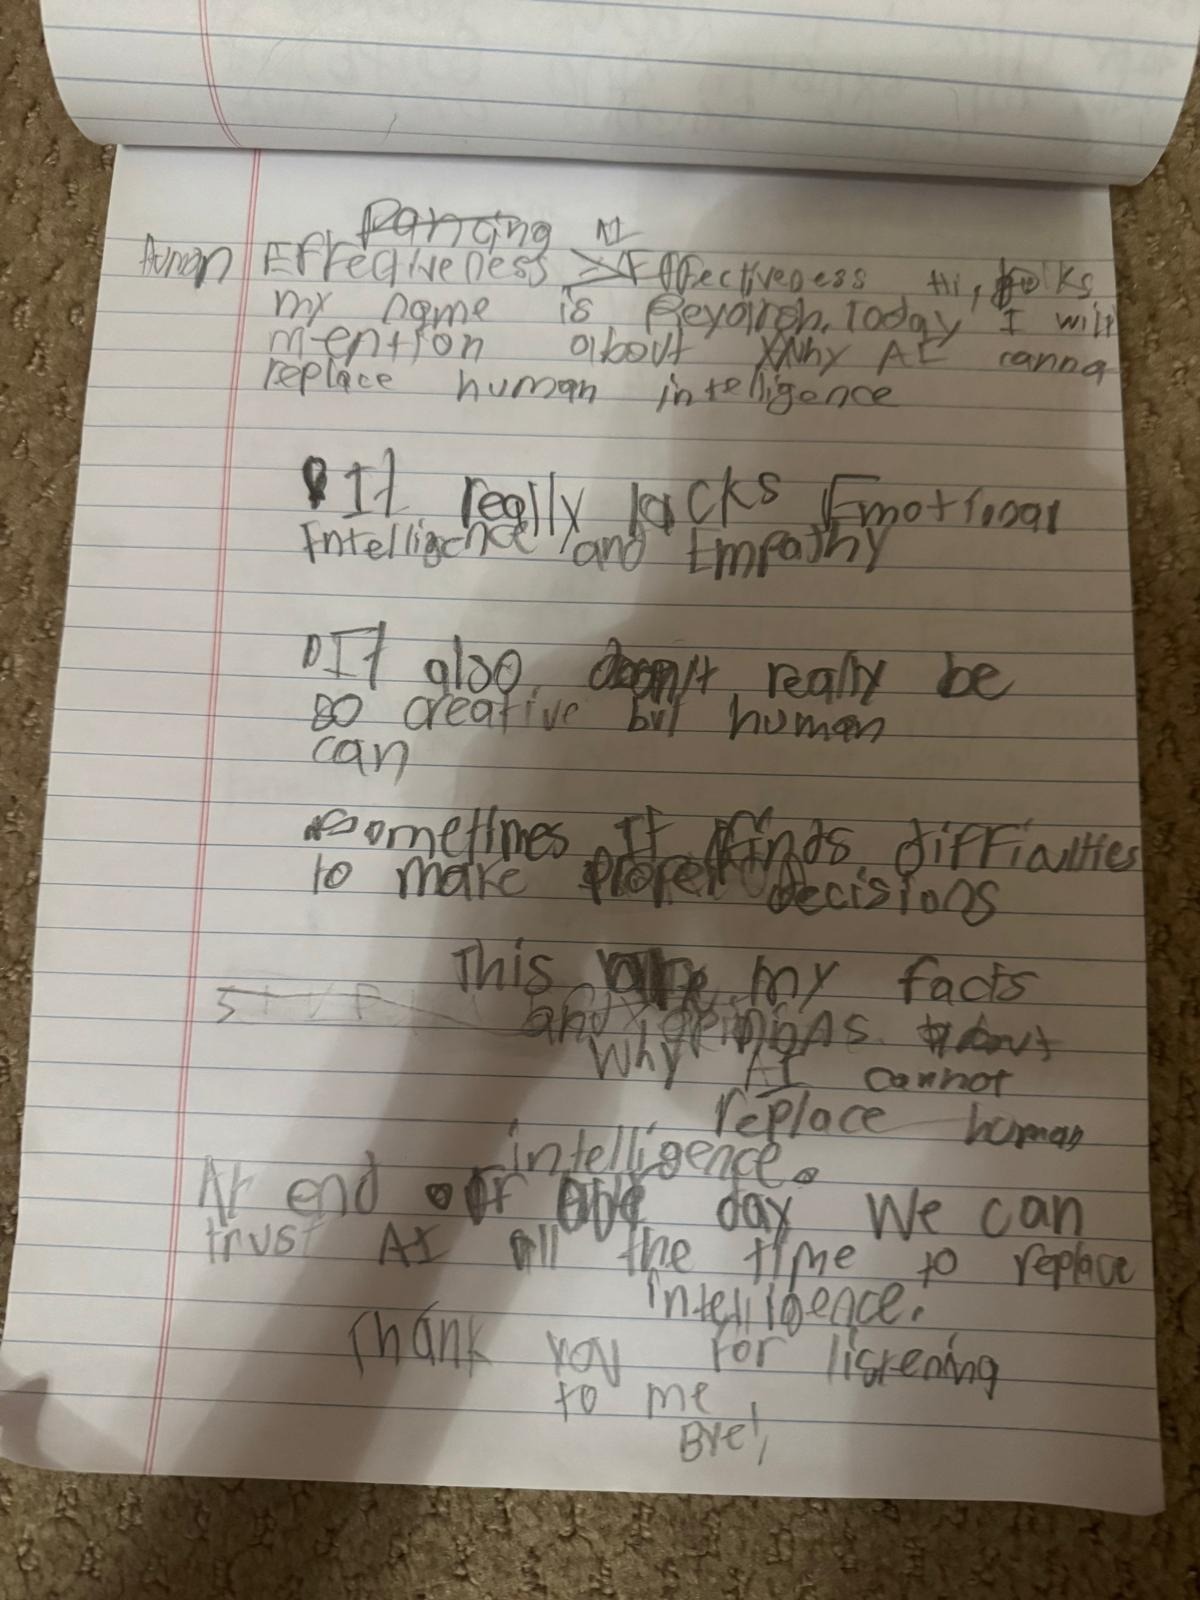 Human Effectiveness > AI Effectiveness Hi, folks
my name is Today I will
mention about Why AI canno
replace human intelligence
• It really lacks Emotional
Intelligence and Empathy
• It also doesn't really be
so creative but human
can
• Sometimes It finds difficulties
to make proper decisions
This are my facts
and opinions about
Why AI cannot
replace human
intelligence.
At end of day We can
trust AI all the time to replace
intelligence.
Thank you for listening
to me
Bye!